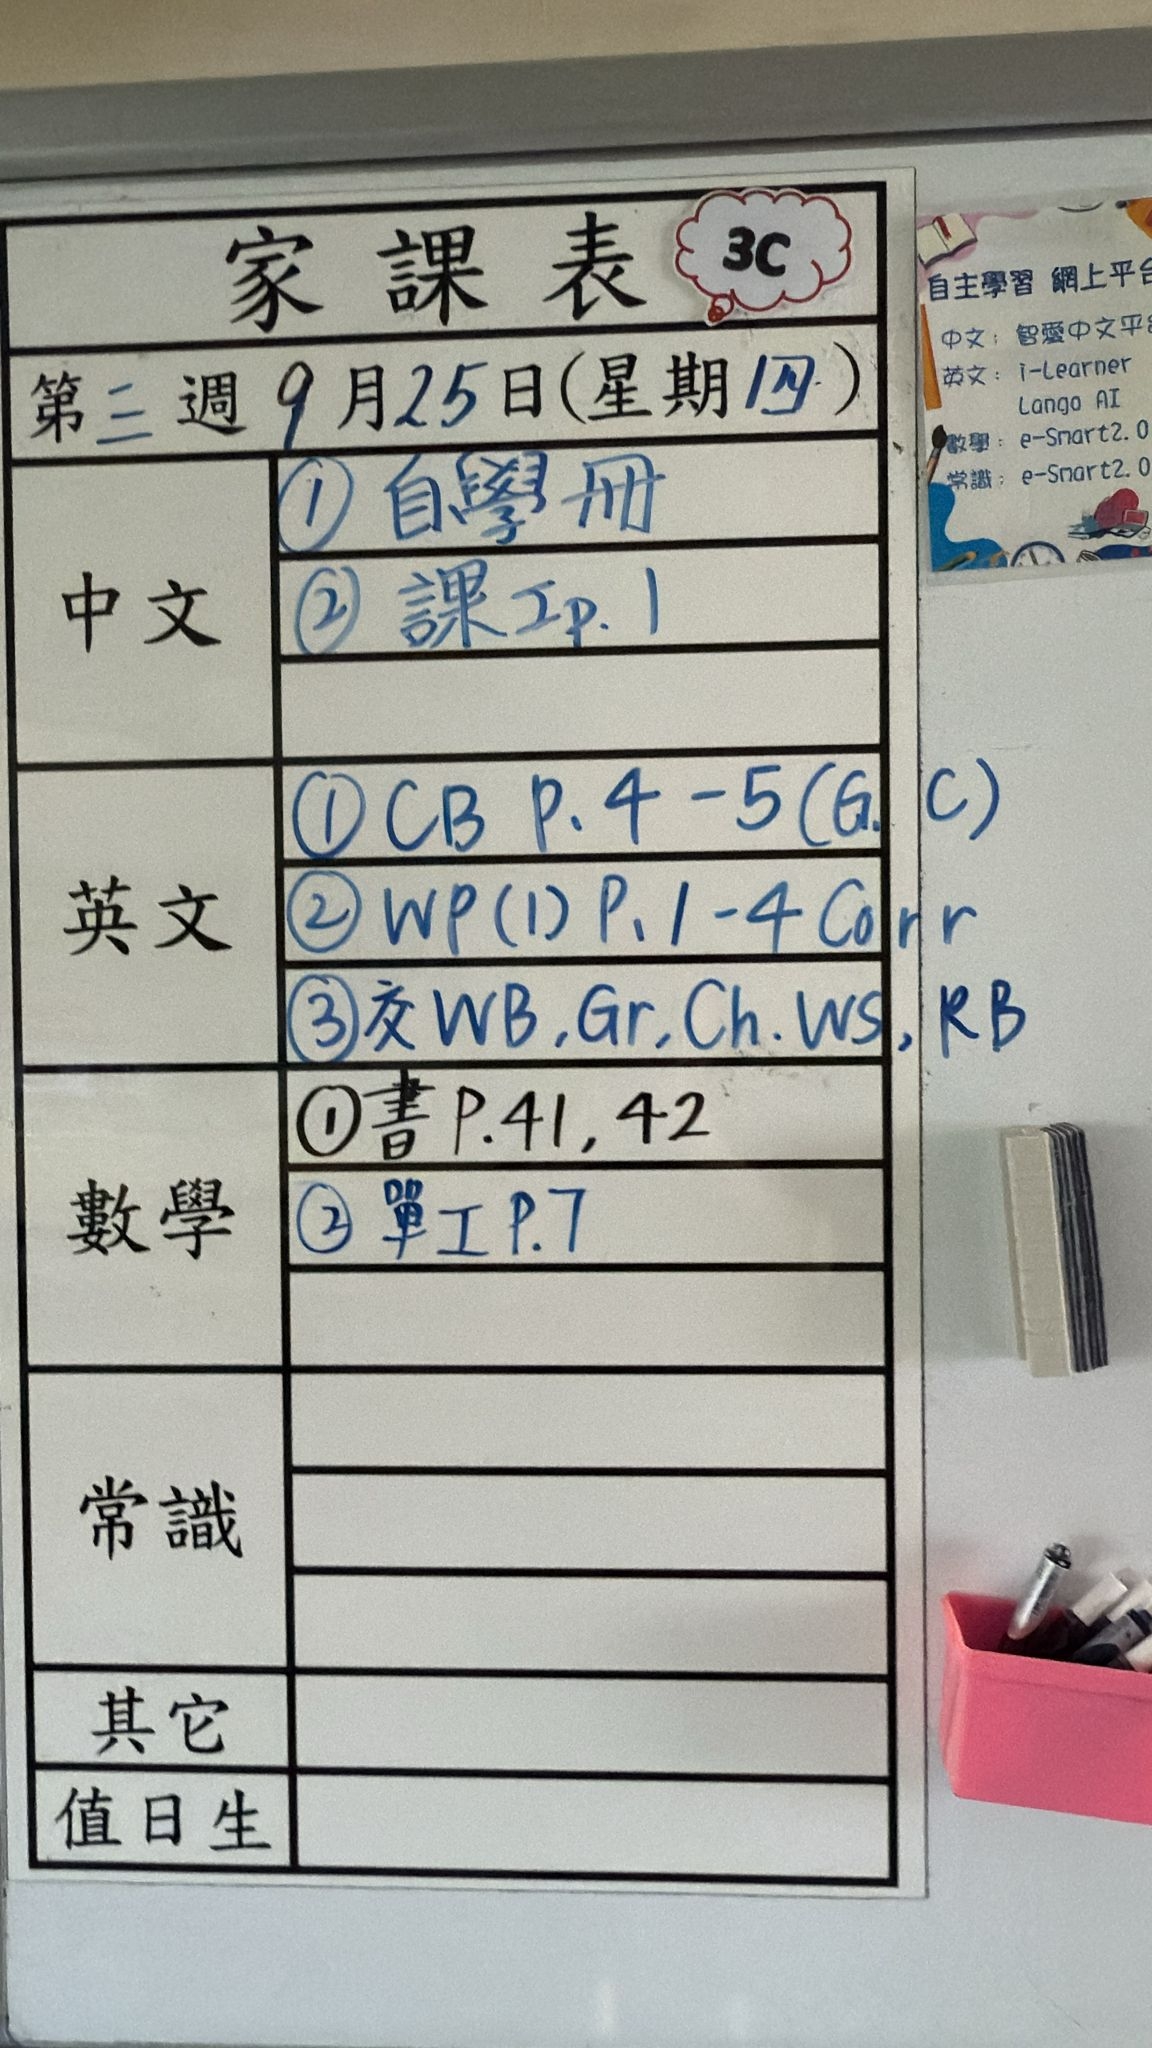 家課表 3C
第三週 9月25日(星期四)
中文
① 自學冊
② 課工p.1
英文
① CB P.4-5(G.C)
② WP(1) P.1-4 Corr
③ 交WB, Gr, Ch. WS, RB
數學
① 書P.41, 42
② 單工P.7
常識
其它
值日生
自主學習 網上平台
中文: 智愛中文平台
英文: i-Learner
Lango AI
數學: e-Smart2.0
常識: e-Smart2.0